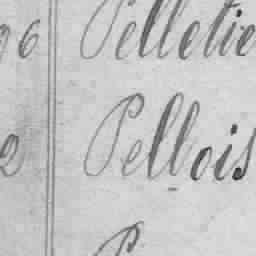 96 Pelletie
2 Pellois